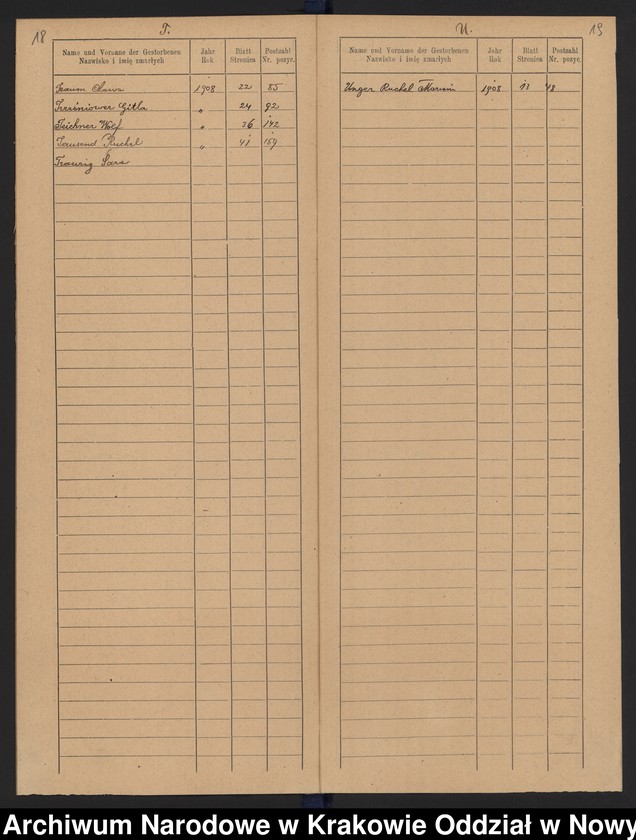 18
T.
Name und Vorname der Gestorbenen
Nazwisko i imię zmarłych
Jahr
Rok
Blatt
Stronica
Postzahl
Nr. pozyc.
Traum Chawa 1908 22 85
Gitla " 24 92
Teichner Wolf " 36 142
Tausend Ruchel " 41 159
Traurig Sara
U.
19
Name und Vorname der Gestorbenen
Nazwisko i imię zmarłych
Jahr
Rok
Blatt
Stronica
Postzahl
Nr. pozyc.
Unger Ruchel 1908 13 48
Archiwum Narodowe w Krakowie Oddział w Nowy